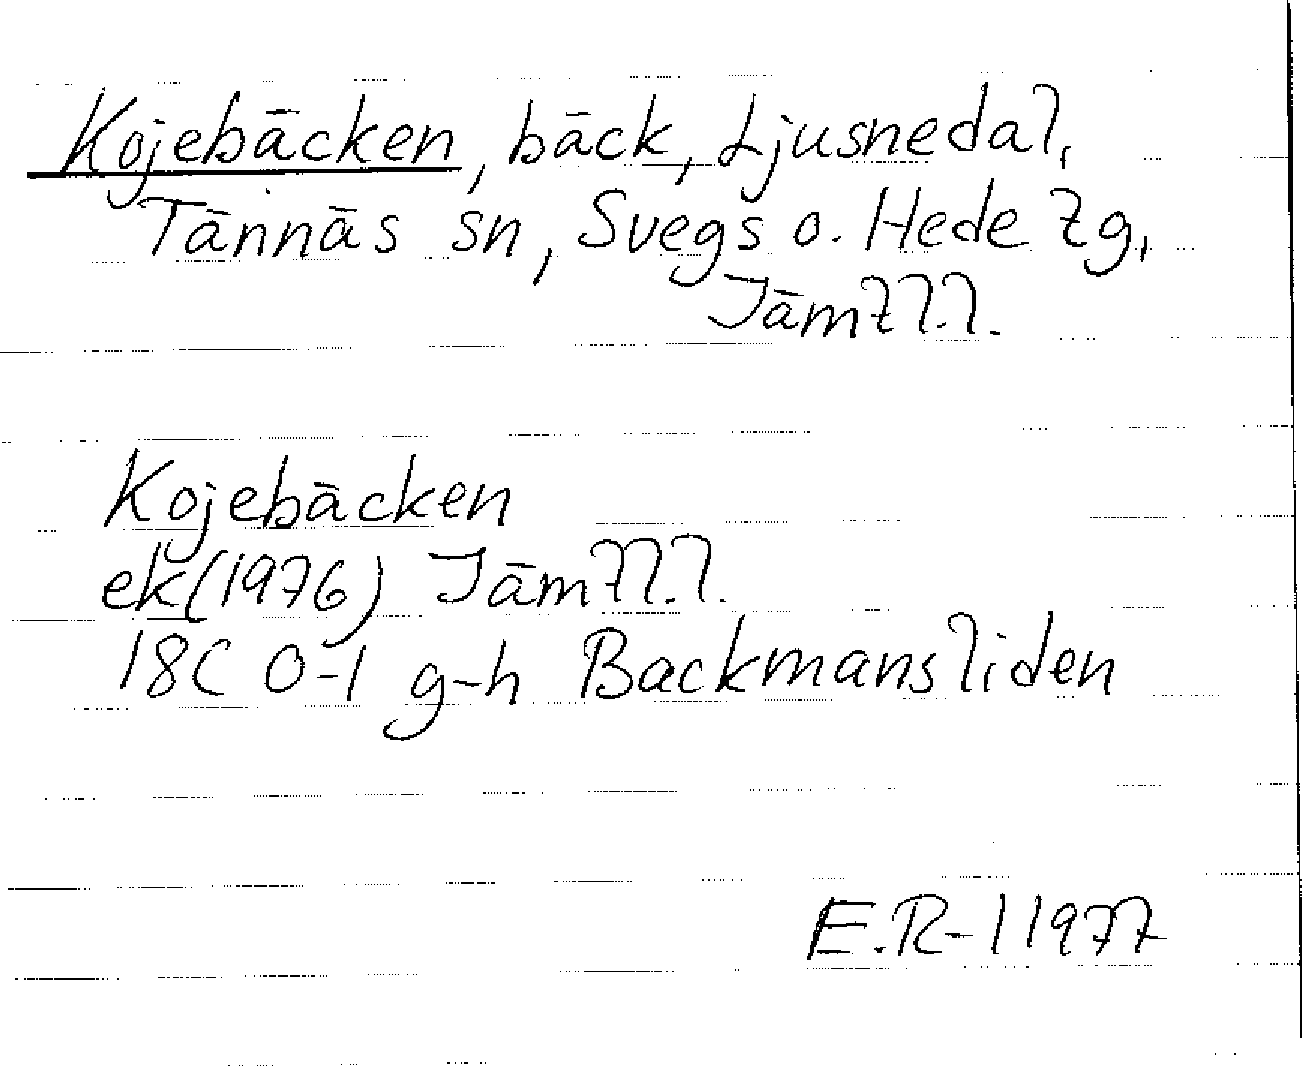 Kojebäcken, bäck, Ljusnedal,
Tännäs sn, Svegs o. Hede tg,
Jämtl.l.
Kojebäcken
ek (1976) Jämtl.l.
18C 0-1 g-h Backmansliden
E.R-l 1977